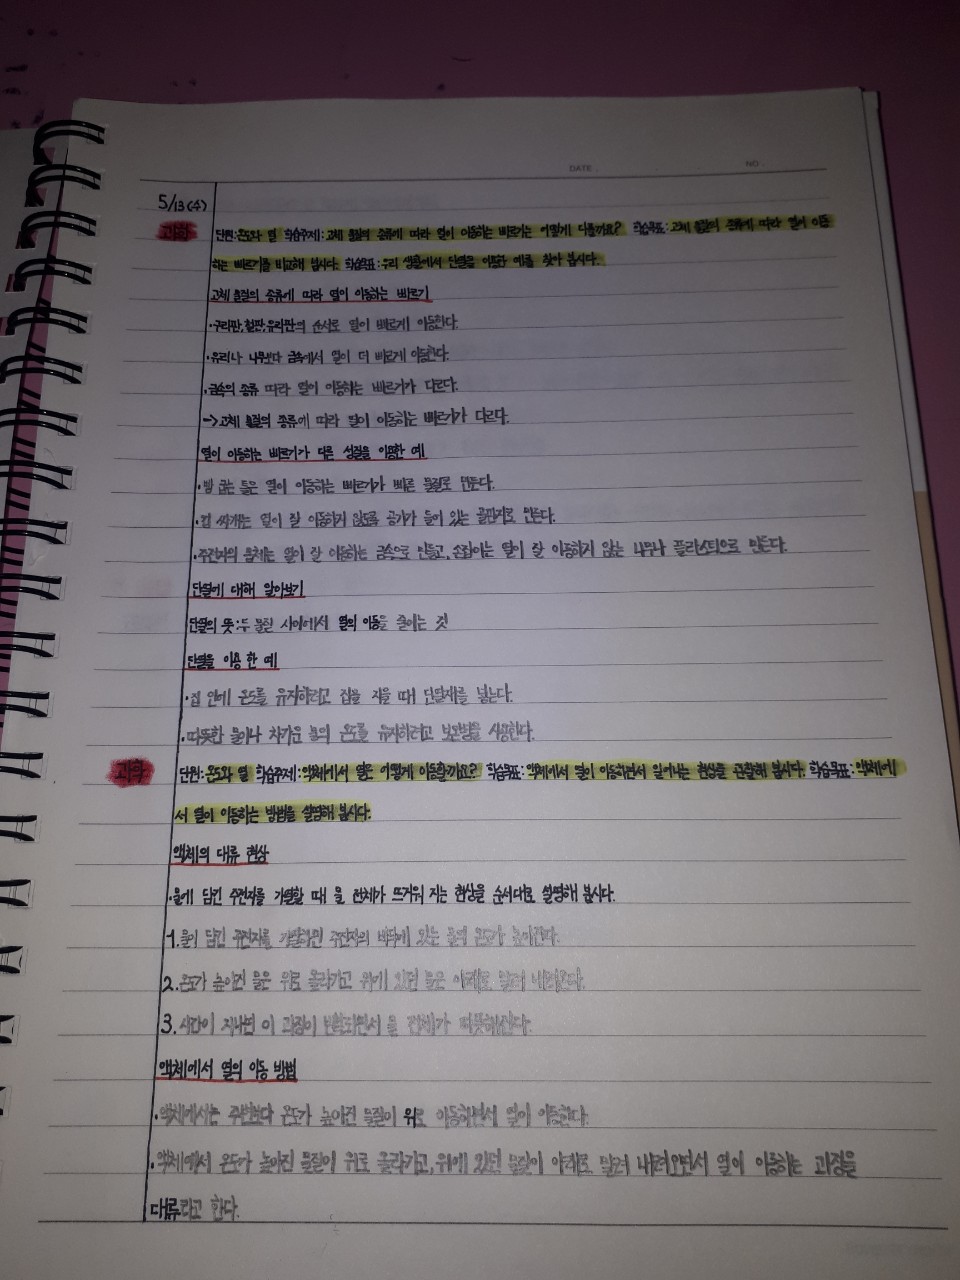 DATE .
NO .
5/13(수)
과학 단원:온도와 열 학습주제:고체 물질의 종류에 따라 열이 이동하는 빠르기는 어떻게 다를까요? 학습목표:고체 물질의 종류에 따라 열이 이동
하는 빠르기를 비교해 봅시다. 학습목표:우리 생활에서 단열을 이용한 예를 찾아 봅시다.
고체 물질의 종류에 따라 열이 이동하는 빠르기
·구리판,철판,유리판의 순서로 열이 빠르게 이동한다.
·유리나 나무보다 금속에서 열이 더 빠르게 이동한다.
·금속의 종류 따라 열이 이동하는 빠르기가 다르다.
->고체 물질의 종류에 따라 열이 이동하는 빠르기가 다르다.
열이 이동하는 빠르기가 다른 성질을 이용한 예
· 굽는 열이 이동하는 빠르기가 빠른 물질로 만든다.
·컵 싸개는 열이 잘 이동하지 않도록 공기가 들어 있는 골판지로 만든다.
·주전자의 몸체는 열이 잘 이동하는 금속으로 만들고, 손잡이는 열이 잘 이동하지 않는 나무나 플라스틱으로 만든다.
단열에 대해 알아보기
단열의 뜻:두 물질 사이에서 열의 이동을 줄이는 것
단열을 이용 한 예
·집 안에 온도를 유지하려고 집을 지을 때 단열재를 넣는다.
·따뜻한 물이나 차가운 물의 온도를 유지하려고 보온병을 사용한다.
과학 단원:온도와 열 학습주제:액체에서 열은 어떻게 이동할까요? 학습목표:액체에서 열이 이동하면서 일어나는 현상을 관찰해 봅시다. 학습목표:액체에
서 열이 이동하는 방법을 설명해 봅시다.
액체의 대류 현상
·물에 담긴 주전자를 가열할 때 물 전체가 뜨거워 지는 현상을 순서대로 설명해 봅시다.
1.물이 담긴 주전자를 가열하면 주전자의 바닥에 있는 물의 온도가 높아진다.
2.온도가 높아진 물은 위로 올라가고 위에 있던 물은 아래로 밀려 내려온다.
3.시간이 지나면 이 과정이 반복되면서 물 전체가 따뜻해진다.
액체에서 열의 이동 방법
·액체에서는 주변보다 온도가 높아진 물질이 위로 이동하면서 열이 이동한다.
·액체에서 온도가 높아진 물질이 위로 올라가고, 위에 있던 물질이 아래로 밀려 내려오면서 열이 이동하는 과정을
대류라고 한다.